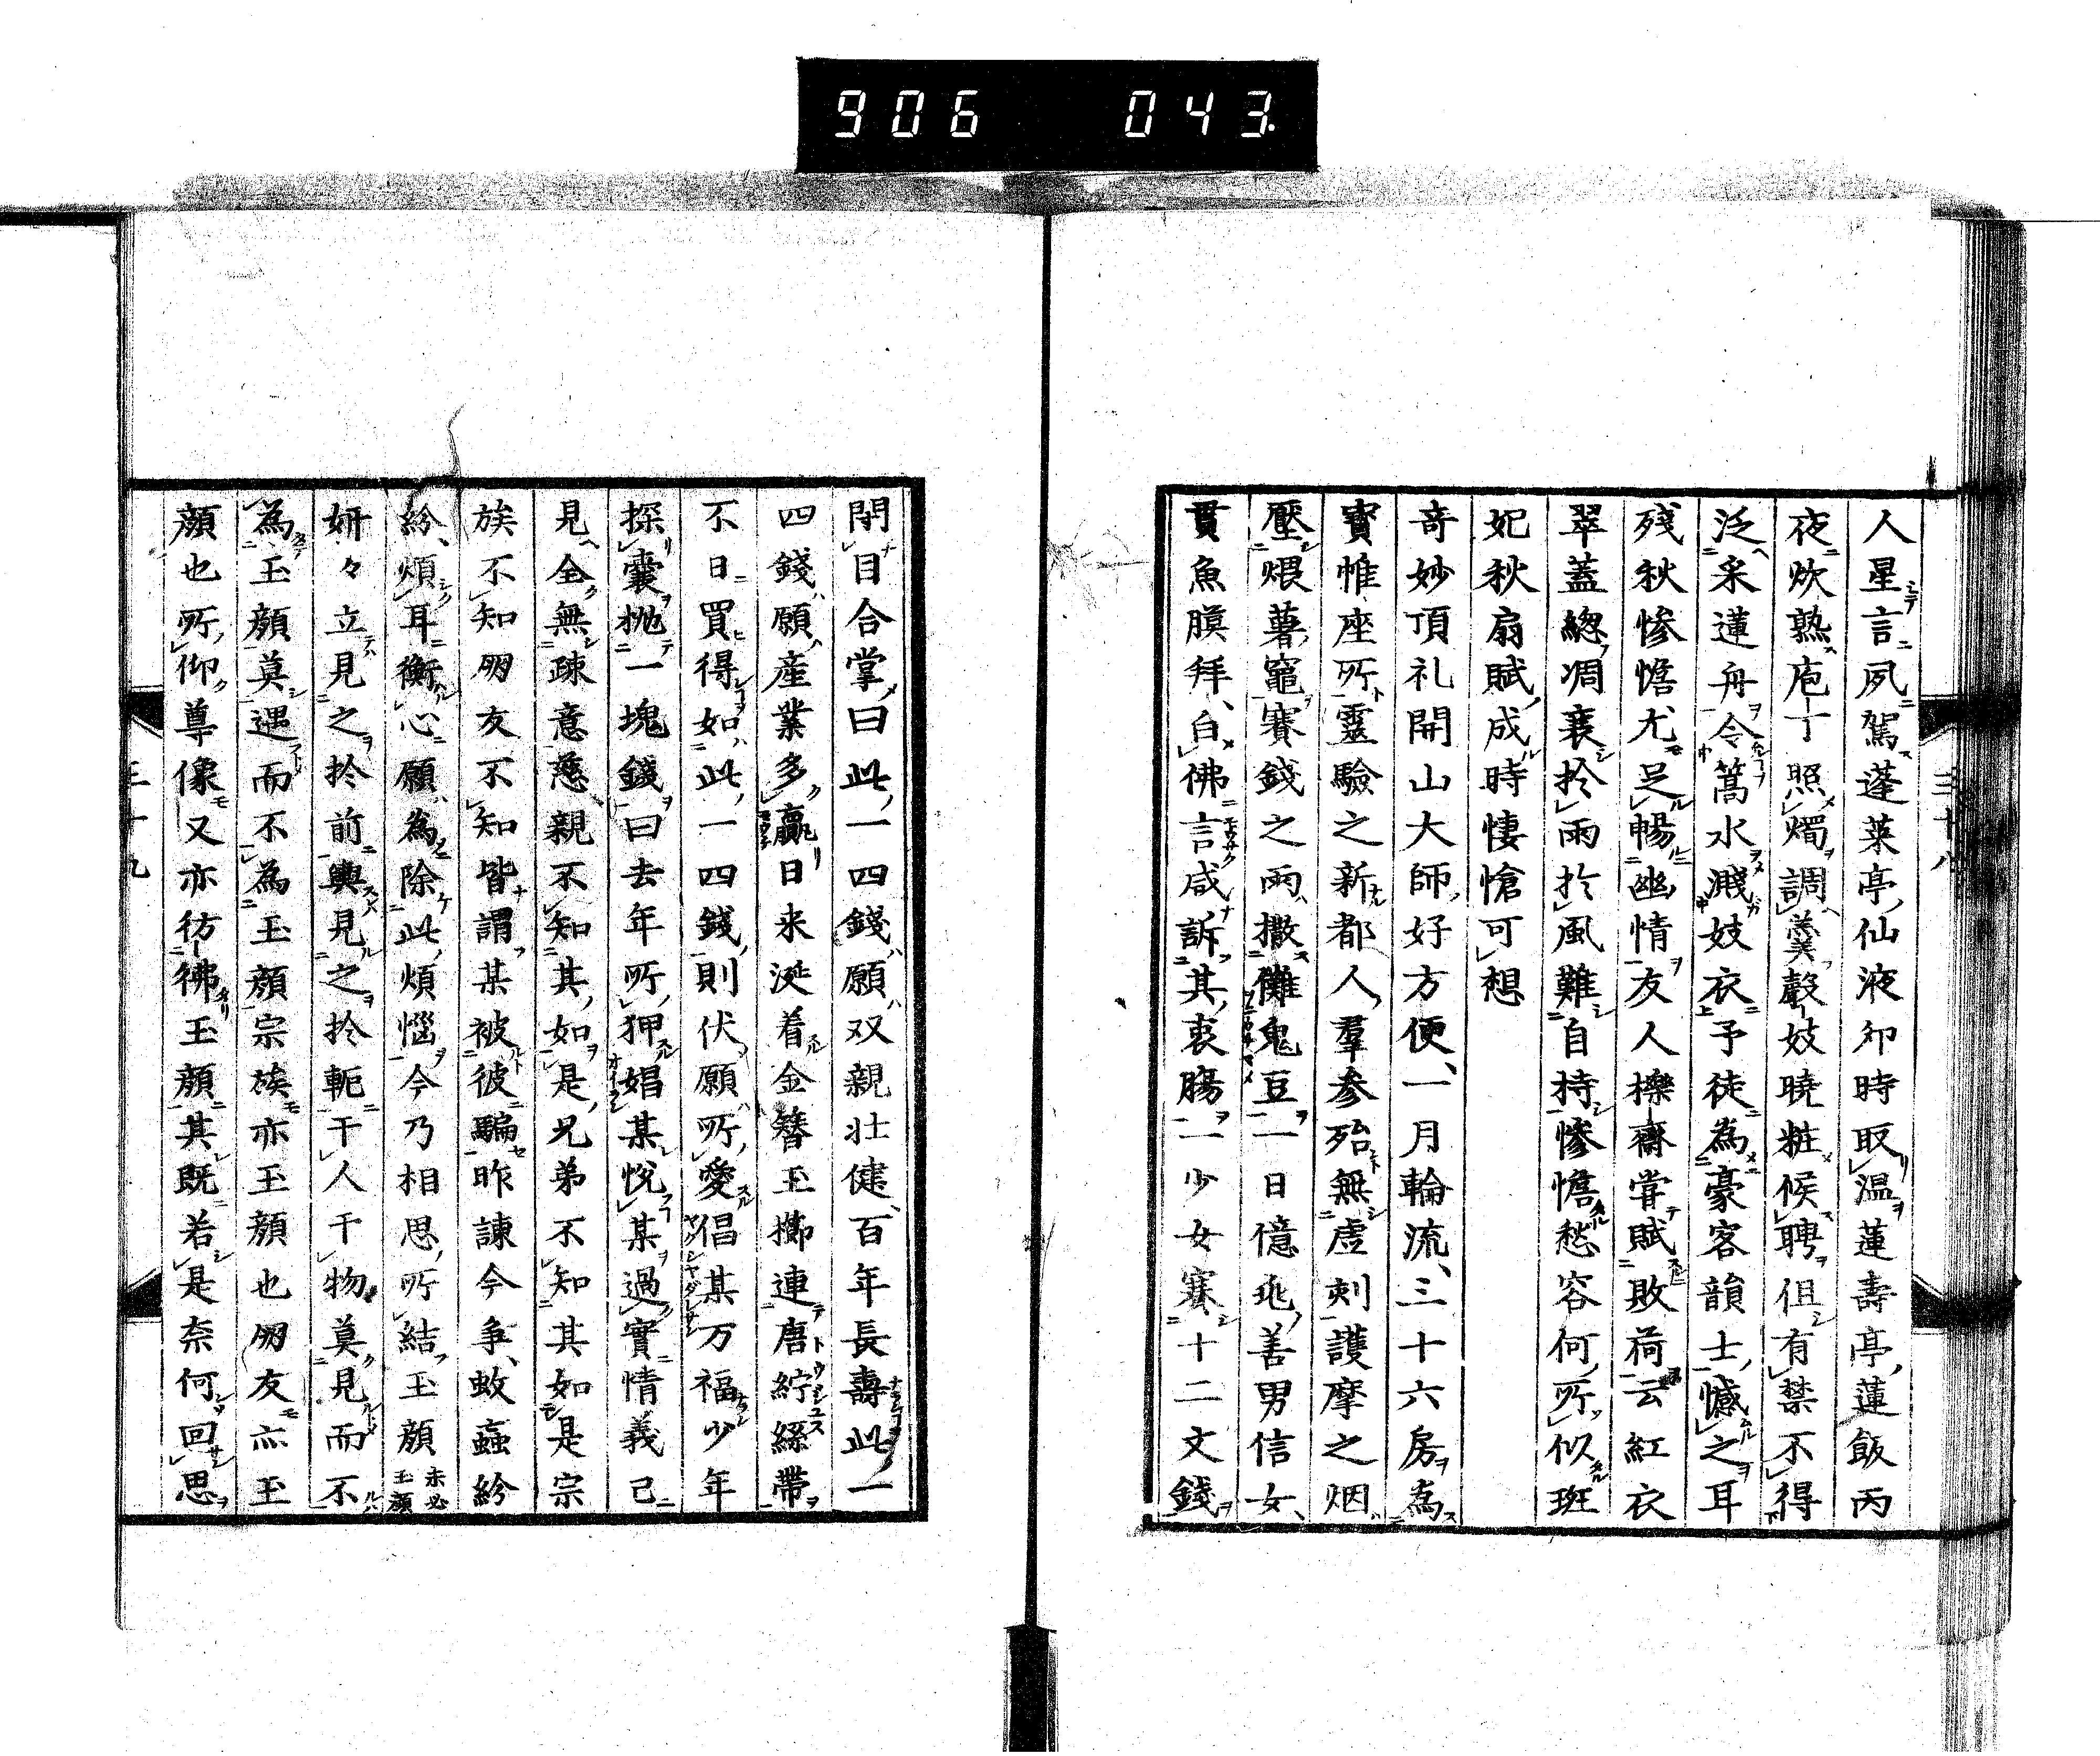 906 043
人星言夙駕蓬萊亭仙液卯時取温蓮壽亭蓮飯丙
夜炊熟庖丁照燭調羹聲妓曉粧候聘但有禁不得
泛采蓮舟令篙水濺妓衣予徒為豪客韻士憾之耳
殘秋惨憺尤足暢幽情友人櫟齋甞賦敗荷云紅衣
翠蓋緫凋衰扵雨扵風難自持惨憺愁容何所似班
妃秋扇賦成時悽愴可想
奇妙頂礼開山大師好方便一月輪流三十六房為
寳帷座所靈驗之新都人羣参殆無虚刻護摩之烟
壓煨薯竈賽錢之雨撒儺鬼豆一日億兆善男信女
貫魚膜拜白佛言咸訴其衷腸一少女賽十二文錢
三十八
閇目合掌曰此一四錢願双親壮健百年長壽此一
四錢願産業多贏日来涎着金簪玉擳連唐紵絲帶
不日買得如此一四錢則伏願所愛倡某万福少年
探囊抛一塊錢曰去年所狎娼某悅某過實情義己
見全無疎意慈親不知其如是兄弟不知其如是宗
族不知朋友不知皆謂某被彼騙昨諌今争蚊蟁紛
紛煩耳衡心願為除此煩惱今乃相思所結玉顔未必玉顔
妍々立見之扵前輿見之扵軛干人干物莫見而不
為玉顔莫遇而不為玉顔宗族亦玉顔也朋友亦玉
顔也所仰尊像又亦彷彿玉顔其既若是奈何回思
三十九